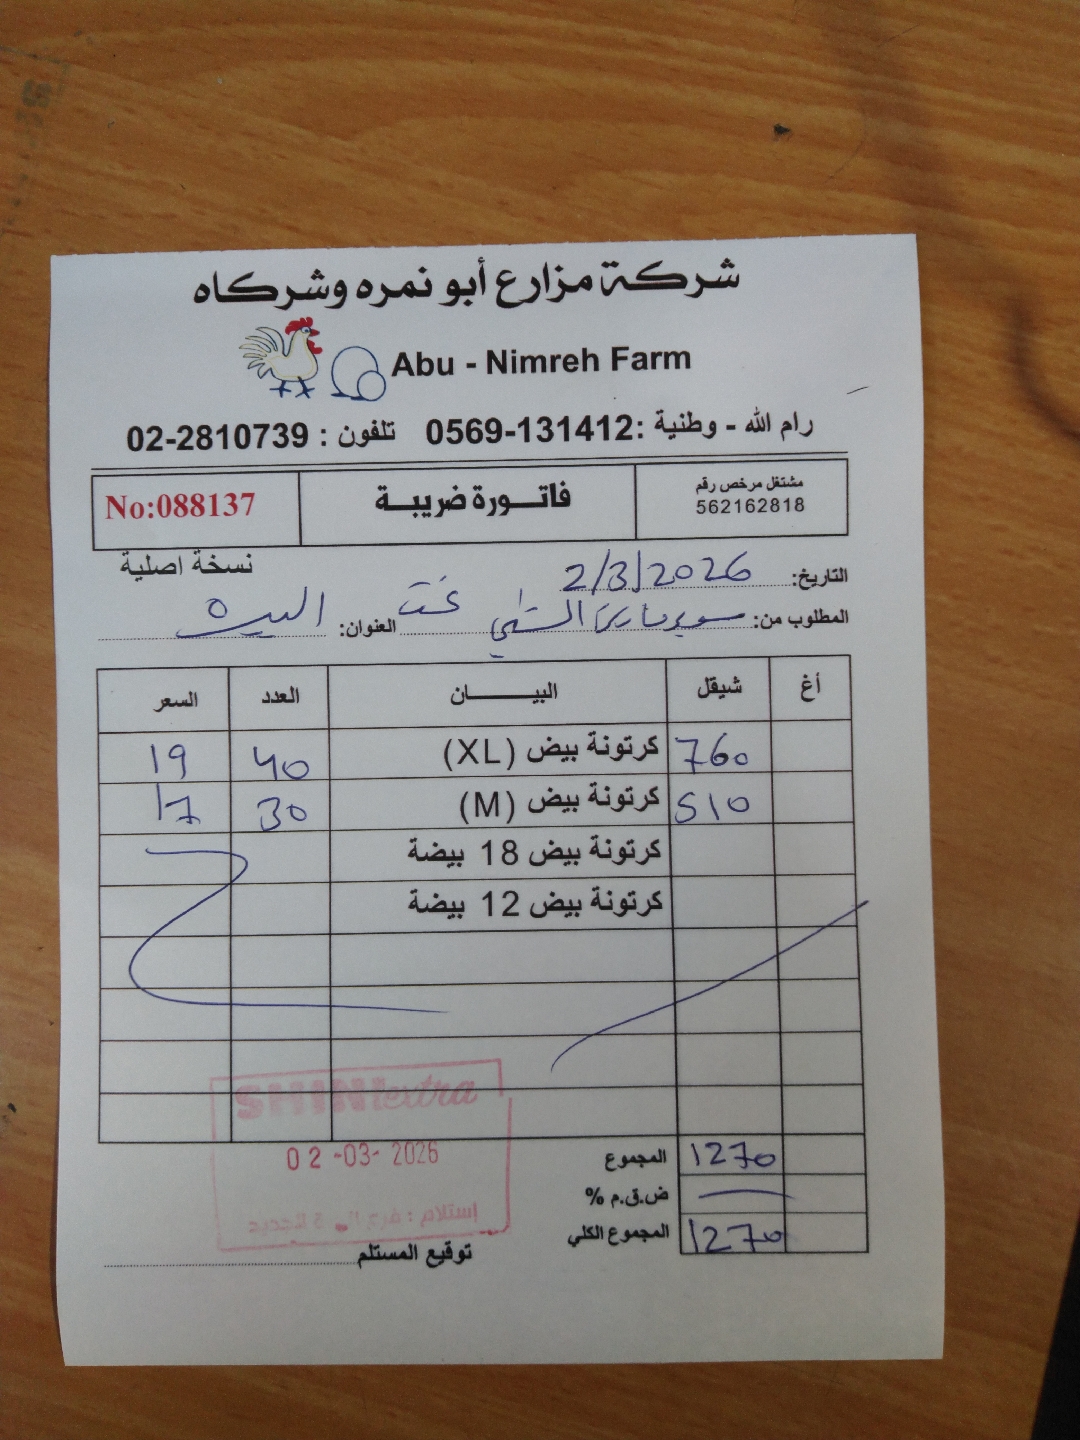 شركة مزارع أبو نمره وشركاه
Abu - Nimreh Farm
رام الله - وطنية :0569-131412 تلفون : 02-2810739
مشتغل مرخص رقم
562162818
فاتورة ضريبة
No:088137
نسخة اصلية
التاريخ: 2/3/2026
المطلوب من: سوبرماركت العنوان: البيره
أغ شيقل البيان العدد السعر
760 كرتونة بيض (XL) 40 19
510 كرتونة بيض (M) 30 17
كرتونة بيض 18 بيضة
كرتونة بيض 12 بيضة
SHINI extra
02-03-2026
إستلام :
المجموع 1270
ض.ق.م %
المجموع الكلي 1270
توقيع المستلم